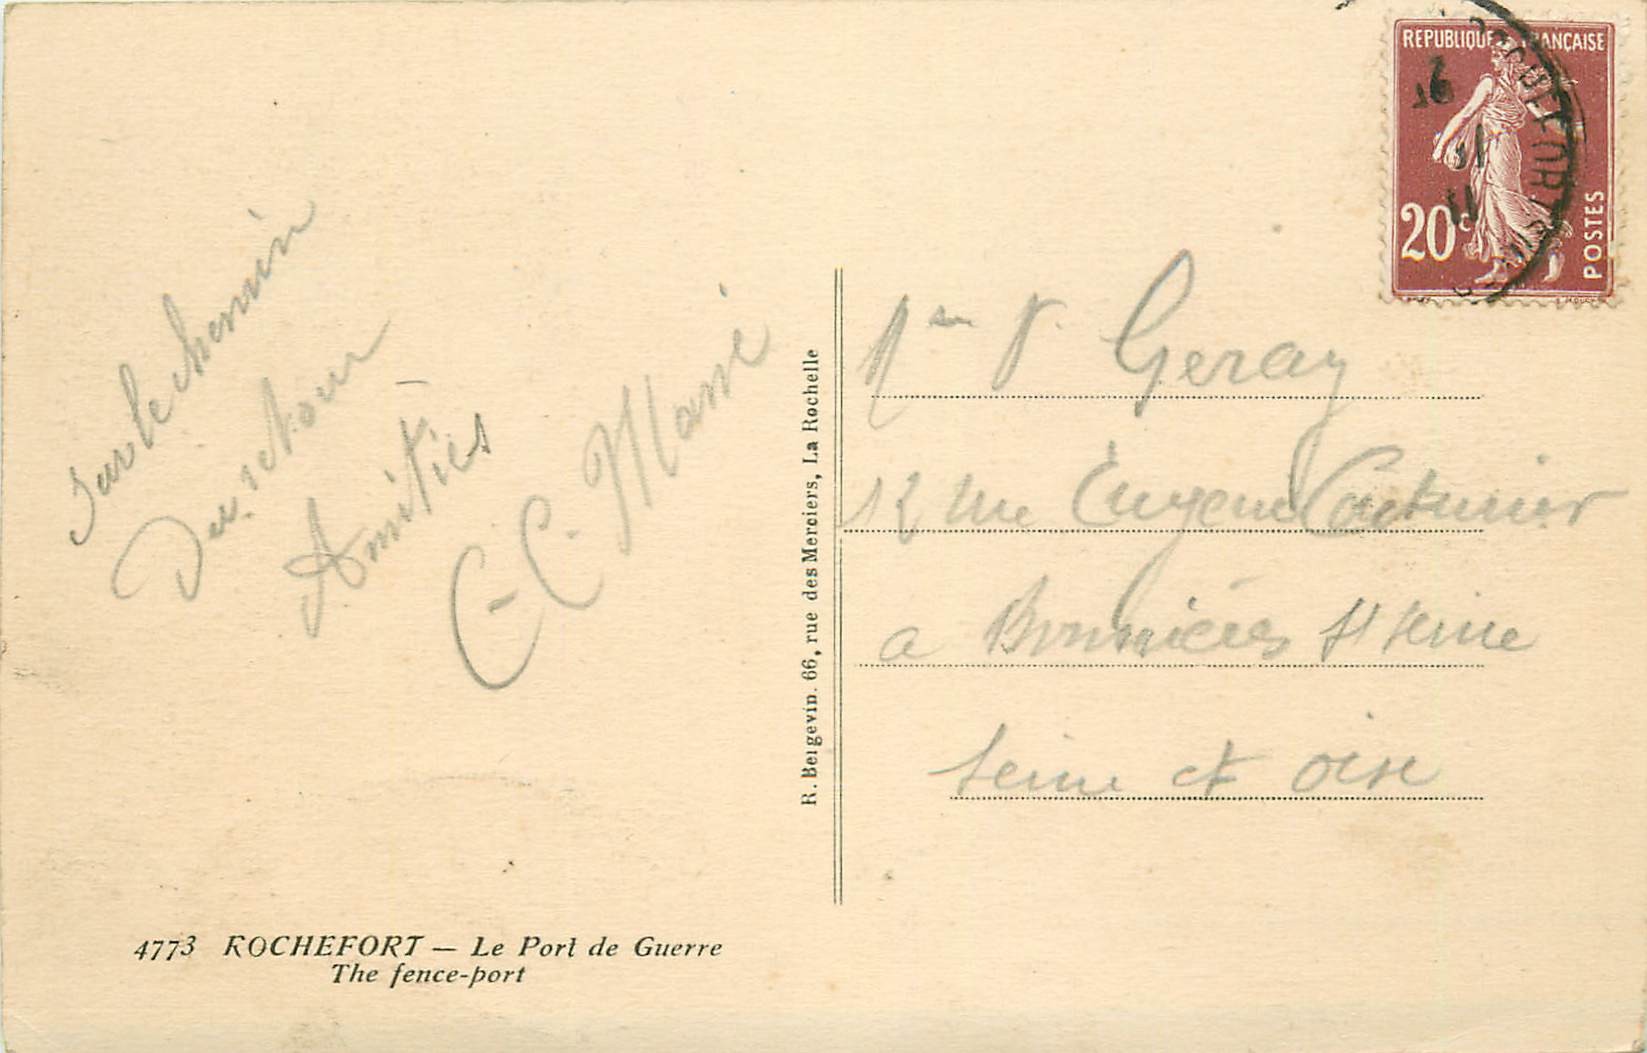 Sur le chemin
Du retour
Amitiés
C. Marie
R. Bergevin. 66, rue des Merciers, La Rochelle
4773 ROCHEFORT — Le Port de Guerre
The fence-port
REPUBLIQUE FRANÇAISE
20c
POSTES
Geray
12 rue Eugene Couturier
a Bonnières s/ seine
seine et oise